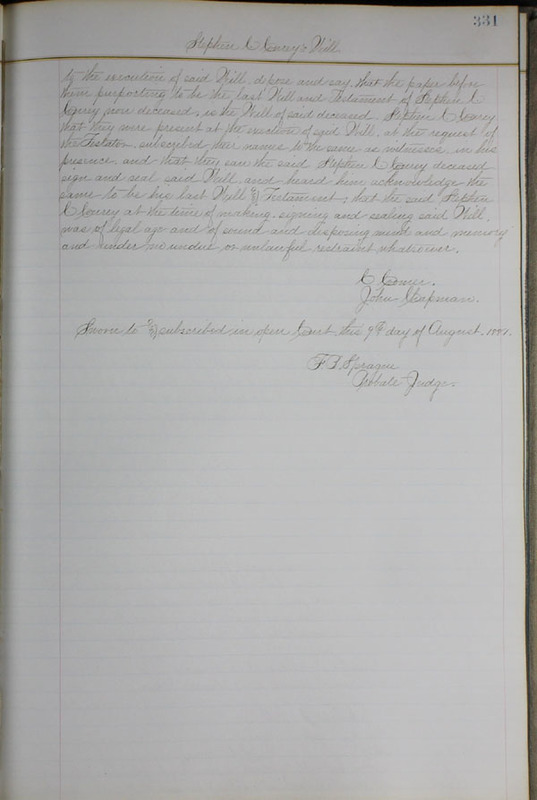 331
Stephen C Corey's Will
to the execution of said Will, depose and say, that the paper before
them purporting to be the last Will and Testament of Stephen C
Corey now deceased, is the Will of said deceased, Stephen C Corey
that they were present at the execution of said Will, at the request of
the Testator, subscribed their names to the same as witnesses, in his
presence, and that they saw the said Stephen C Corey deceased
sign and seal said Will, and heard him acknowledge the
same to be his last Will & Testament; that the said Stephen
C Corey at the time of making, signing and sealing said Will,
was of legal age and of sound and disposing mind and memory
and under no undue or unlawful restraint whatsoever.
C
John Chapman.
Sworn to & subscribed in open Court this 9th day of August, 1887.
F. D. Sprague
Probate Judge.